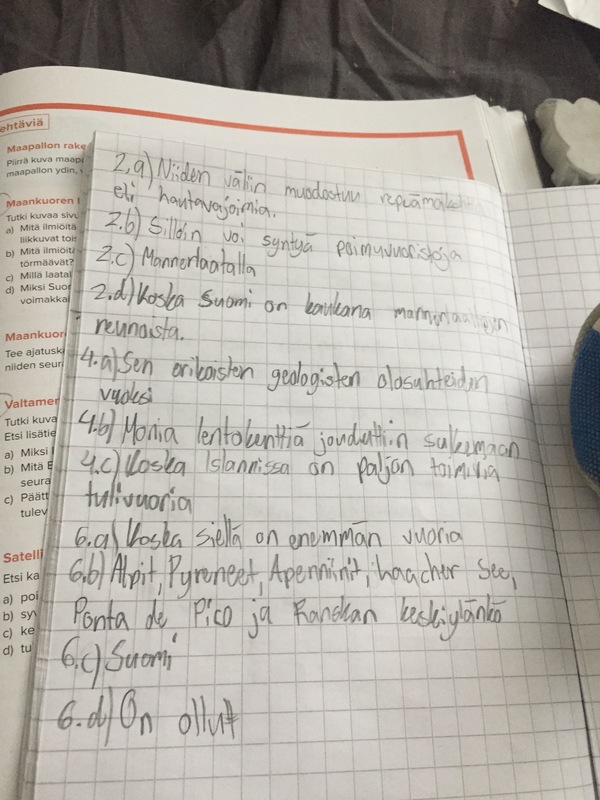 ehtäviä
Maapallon rake
Piirrä kuva maap
maapallon ydin,
Maankuoren l
Tutki kuvaa sivu
a) Mitä ilmiöitä
liikkuvat tois
b) Mitä ilmiöitä
törmäävät?
c) Millä laatal
d) Miksi Suor
voimakka
Maankuor
Tee ajatusk
niiden seur
Valtamer
Tutki kuva
Etsi lisätie
a) Miksi
b) Mitä E
seura
c) Päätt
tulev
Satelli
Etsi ka
a) poi
b) sy
c) ke
d) tu
2.a) Niiden väliin muodostuu
eli hautavajoimia.
2.b) Silloin voi syntyä poimuvuoristoja
2.c) Mannerlaatalla
2.d) Koska Suomi on kaukana
reunoista.
4.a) Sen erikoisten geologisten olosuhteiden
vuoksi
4.b) Monia lentokenttiä jouduttiin sulkemaan
4.c) Koska Islannissa on paljon toimivia
tulivuoria
6.a) Koska siellä on enemmän vuoria
6.b) Alpit, Pyreneet, Apenniinit, Laacher See,
Ponta de Pico ja Ranskan keskiylänkö
6.c) Suomi
6.d) On ollut